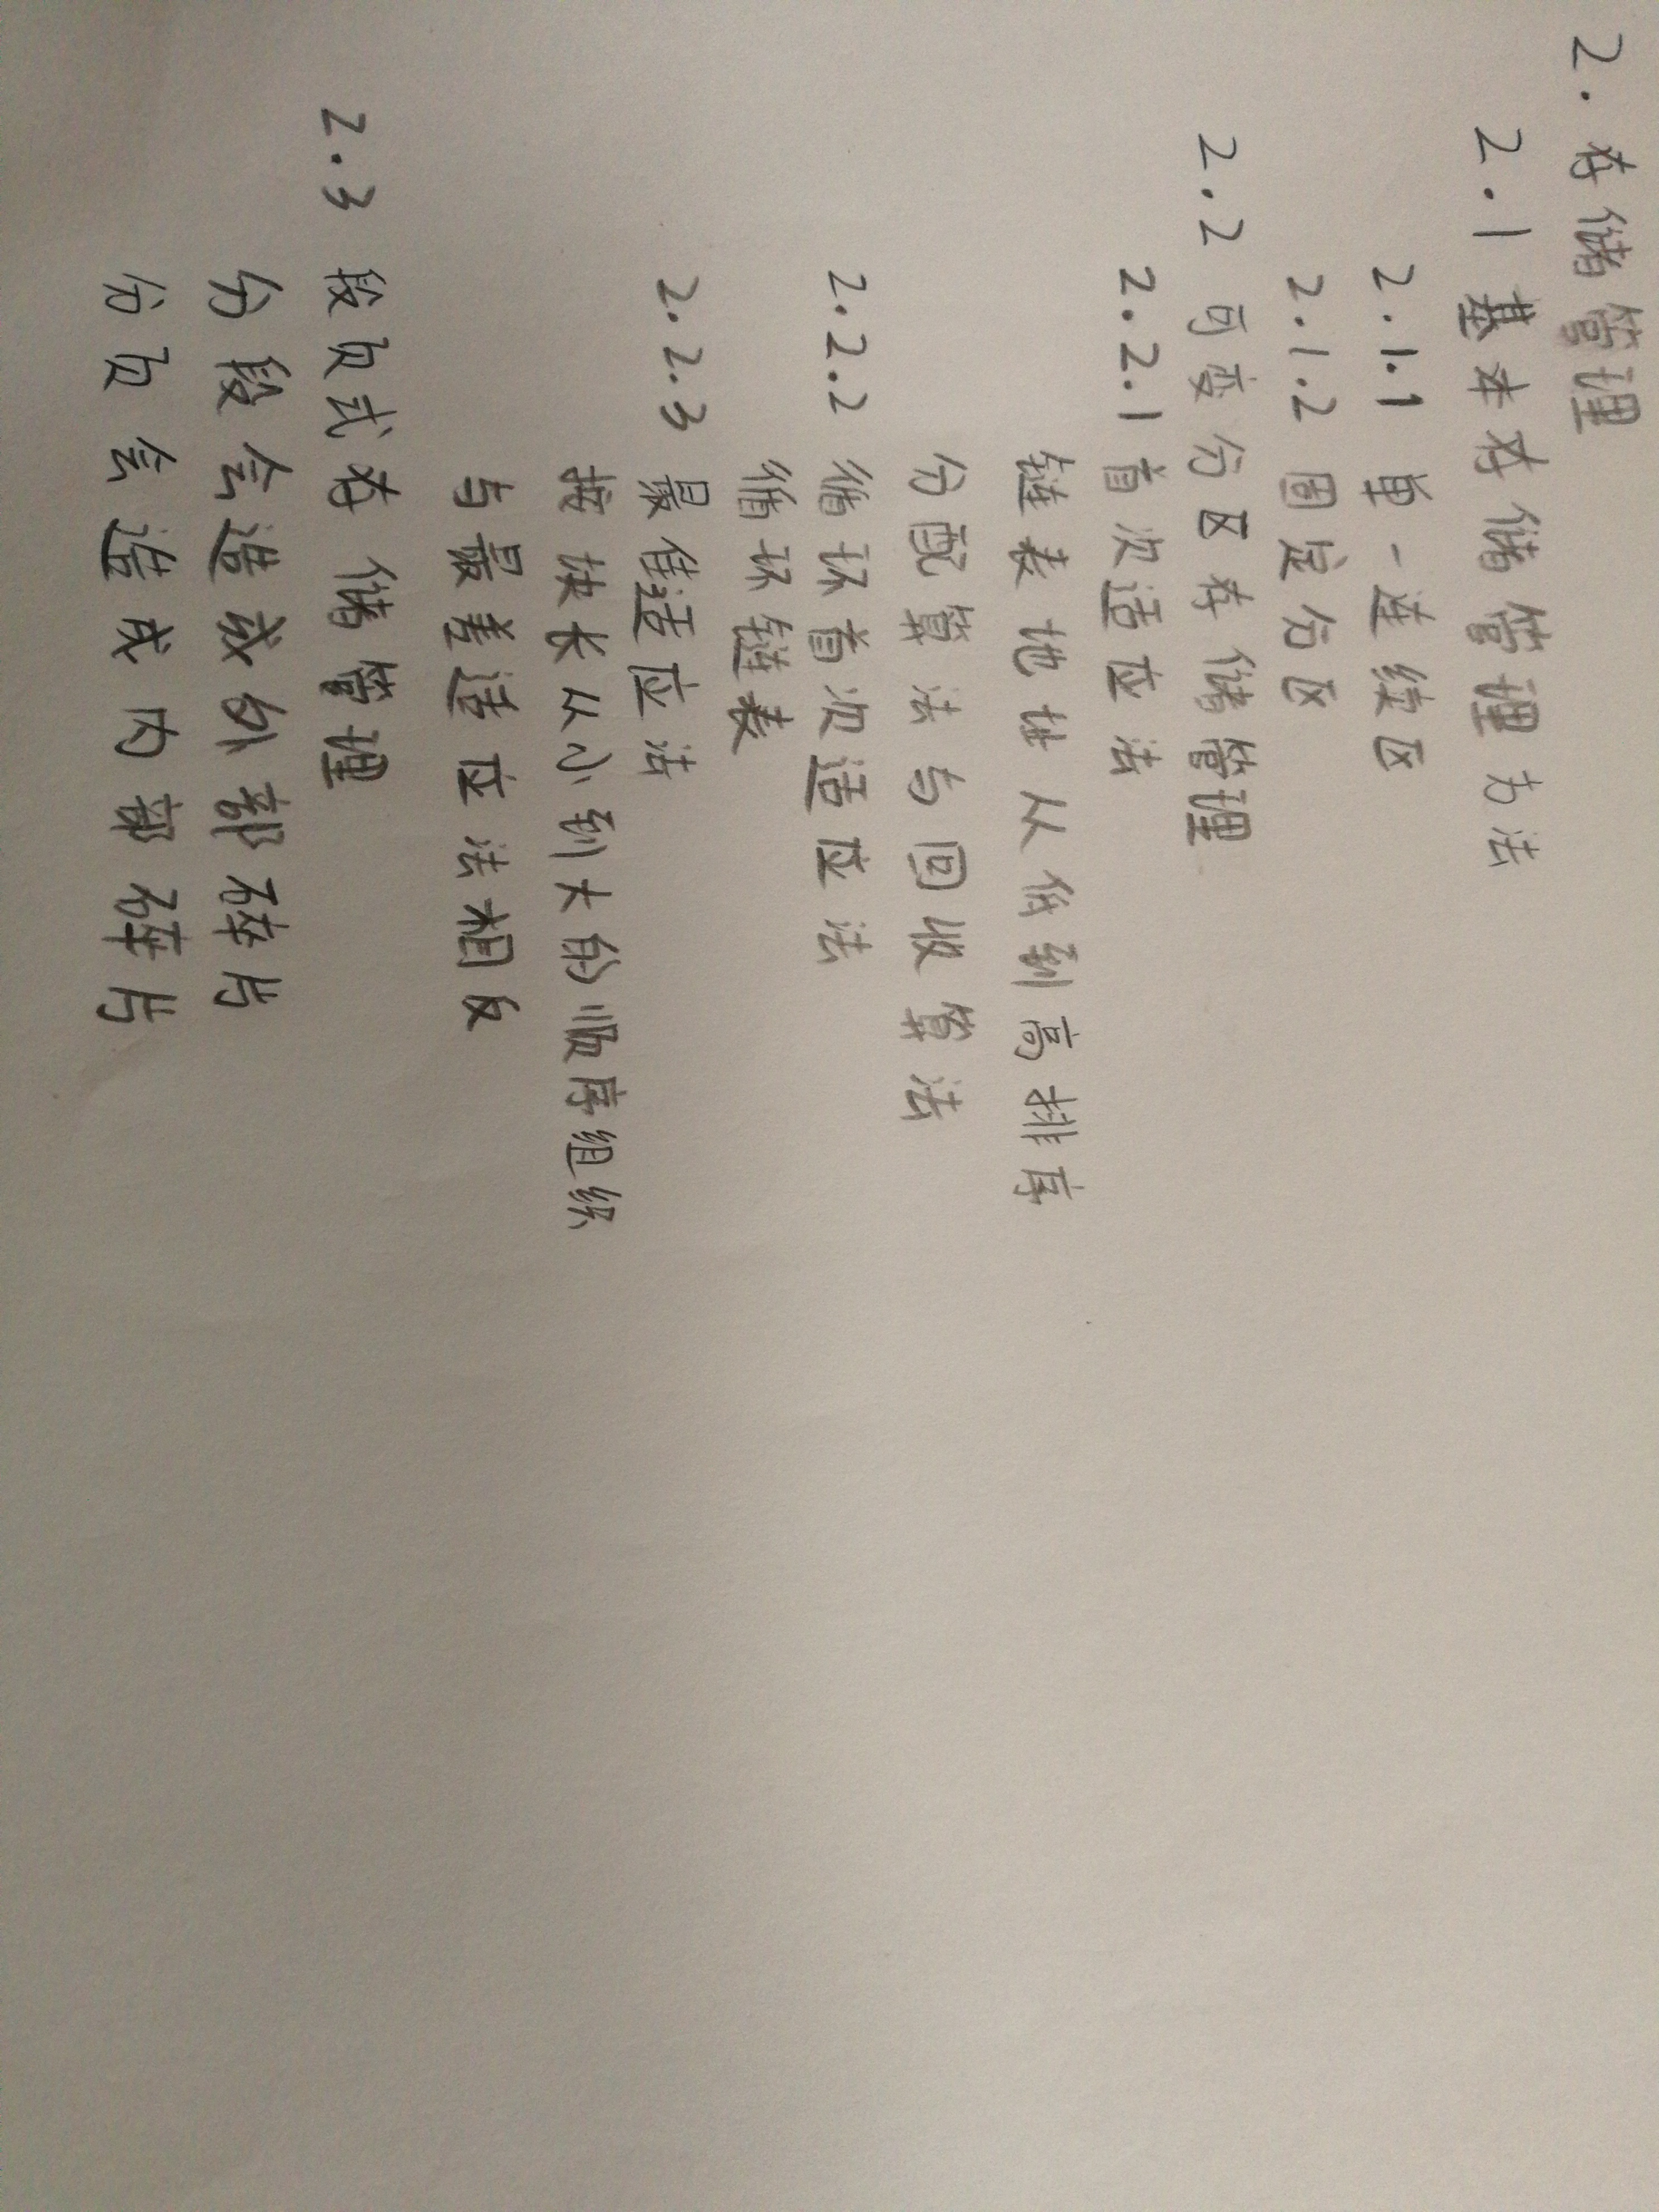 2.存储管理
2.1基本存储管理方法
2.1.1 单一连续区
2.1.2 固定分区
2.2 可变分区存储管理
2.2.1 首次适应法
链表地址从低到高排序
分配算法与回收算法
2.2.2 循环首次适应法
循环链表
2.2.3 最佳适应法
按块长从小到大的顺序组织
与最差适应法相反
2.3 段页式存储管理
分段会造成外部碎片
分页会造成内部碎片